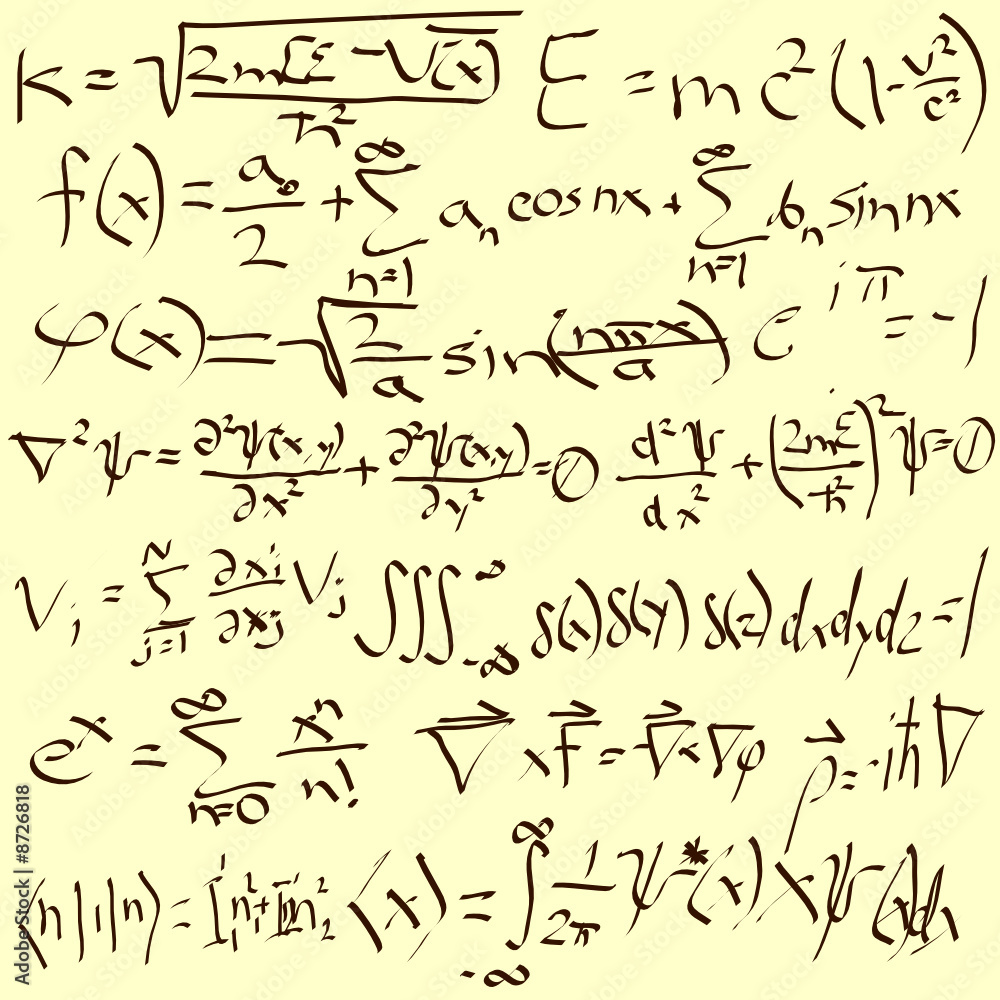 k = √(2m[E - V(x)]/ħ²) E = mc²(1-v²/c²)
f(x) = a₀/2 + ∑_{n=1}^{∞} aₙ cos nx + ∑_{n=1}^{∞} bₙ sin nx
φ(x) = √(2/a) sin(nπx/a) e^{iπ} = -1
∇²ψ = ∂²ψ(x,y)/∂x² + ∂²ψ(x,y)/∂y² = 0 d²ψ/dx² + (2mE/ħ²)²ψ = 0
Vᵢ = ∑_{j=1}^{N} ∂xᵢ/∂xⱼ Vⱼ ∭_{-∞}^{∞} δ(x)δ(y)δ(z)dxdydz = 1
eˣ = ∑_{n=0}^{∞} xⁿ/n! ∇⃗ x F⃗ = ∇⃗ x ∇φ p⃗ = -iħ∇
⟨n|1|n⟩ = ⟨x⟩ = ∫_{-∞}^{∞} 1/2π ψ*(x) x ψ(x)dx
Adobe Stock | #8726818